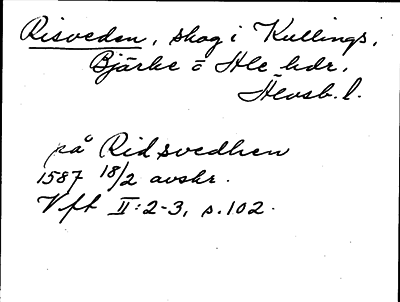 Risveden, skog i Kullings,
Bjärke o Ale hdr,
Älvsb. l.
på Ridsvedhen
1587 18/2 avskr.
Vft II:2-3, s.102.